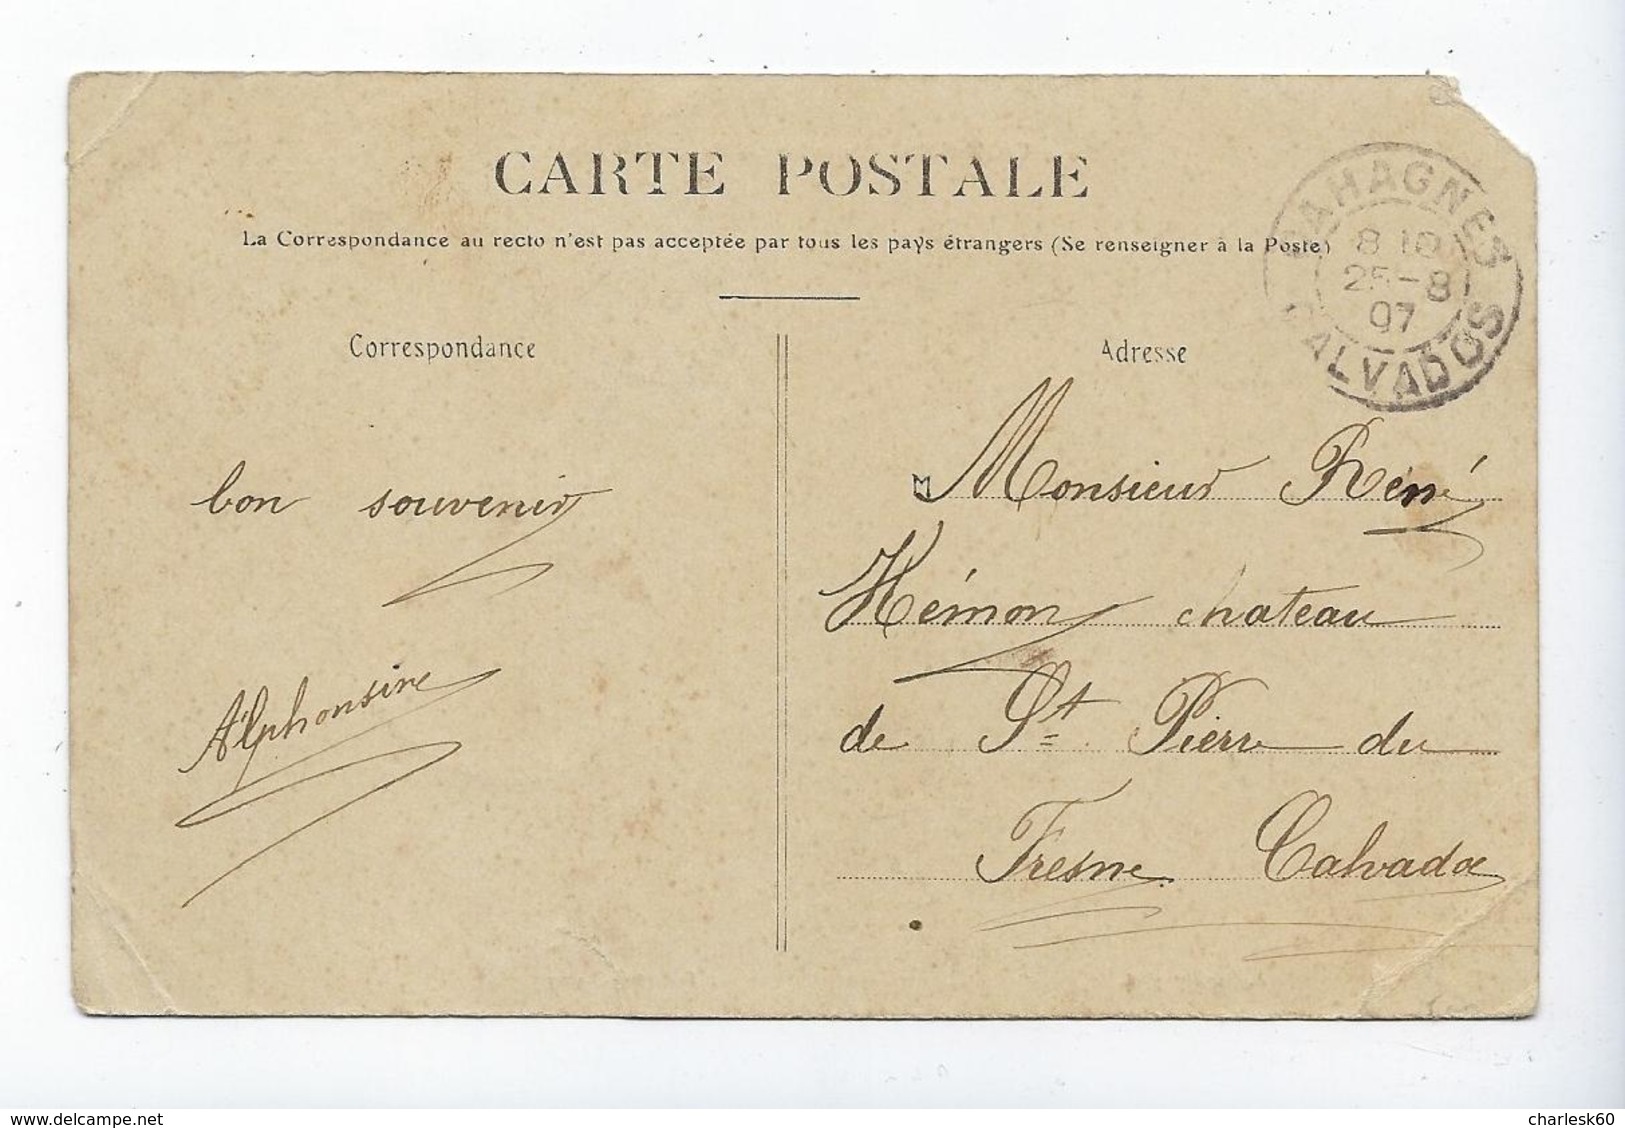 CARTE POSTALE
La Correspondance au recto n'est pas acceptée par tous les pays étrangers (Se renseigner à la Poste)
CAHAGNES
8 10
25-8
07
CALVADOS
Correspondance
Adresse
bon souvenir
Alphonsine
Monsieur Réné
Hémon chateau
de St Pierre du
Fresne Calvados
delcampe.net
charlesk60